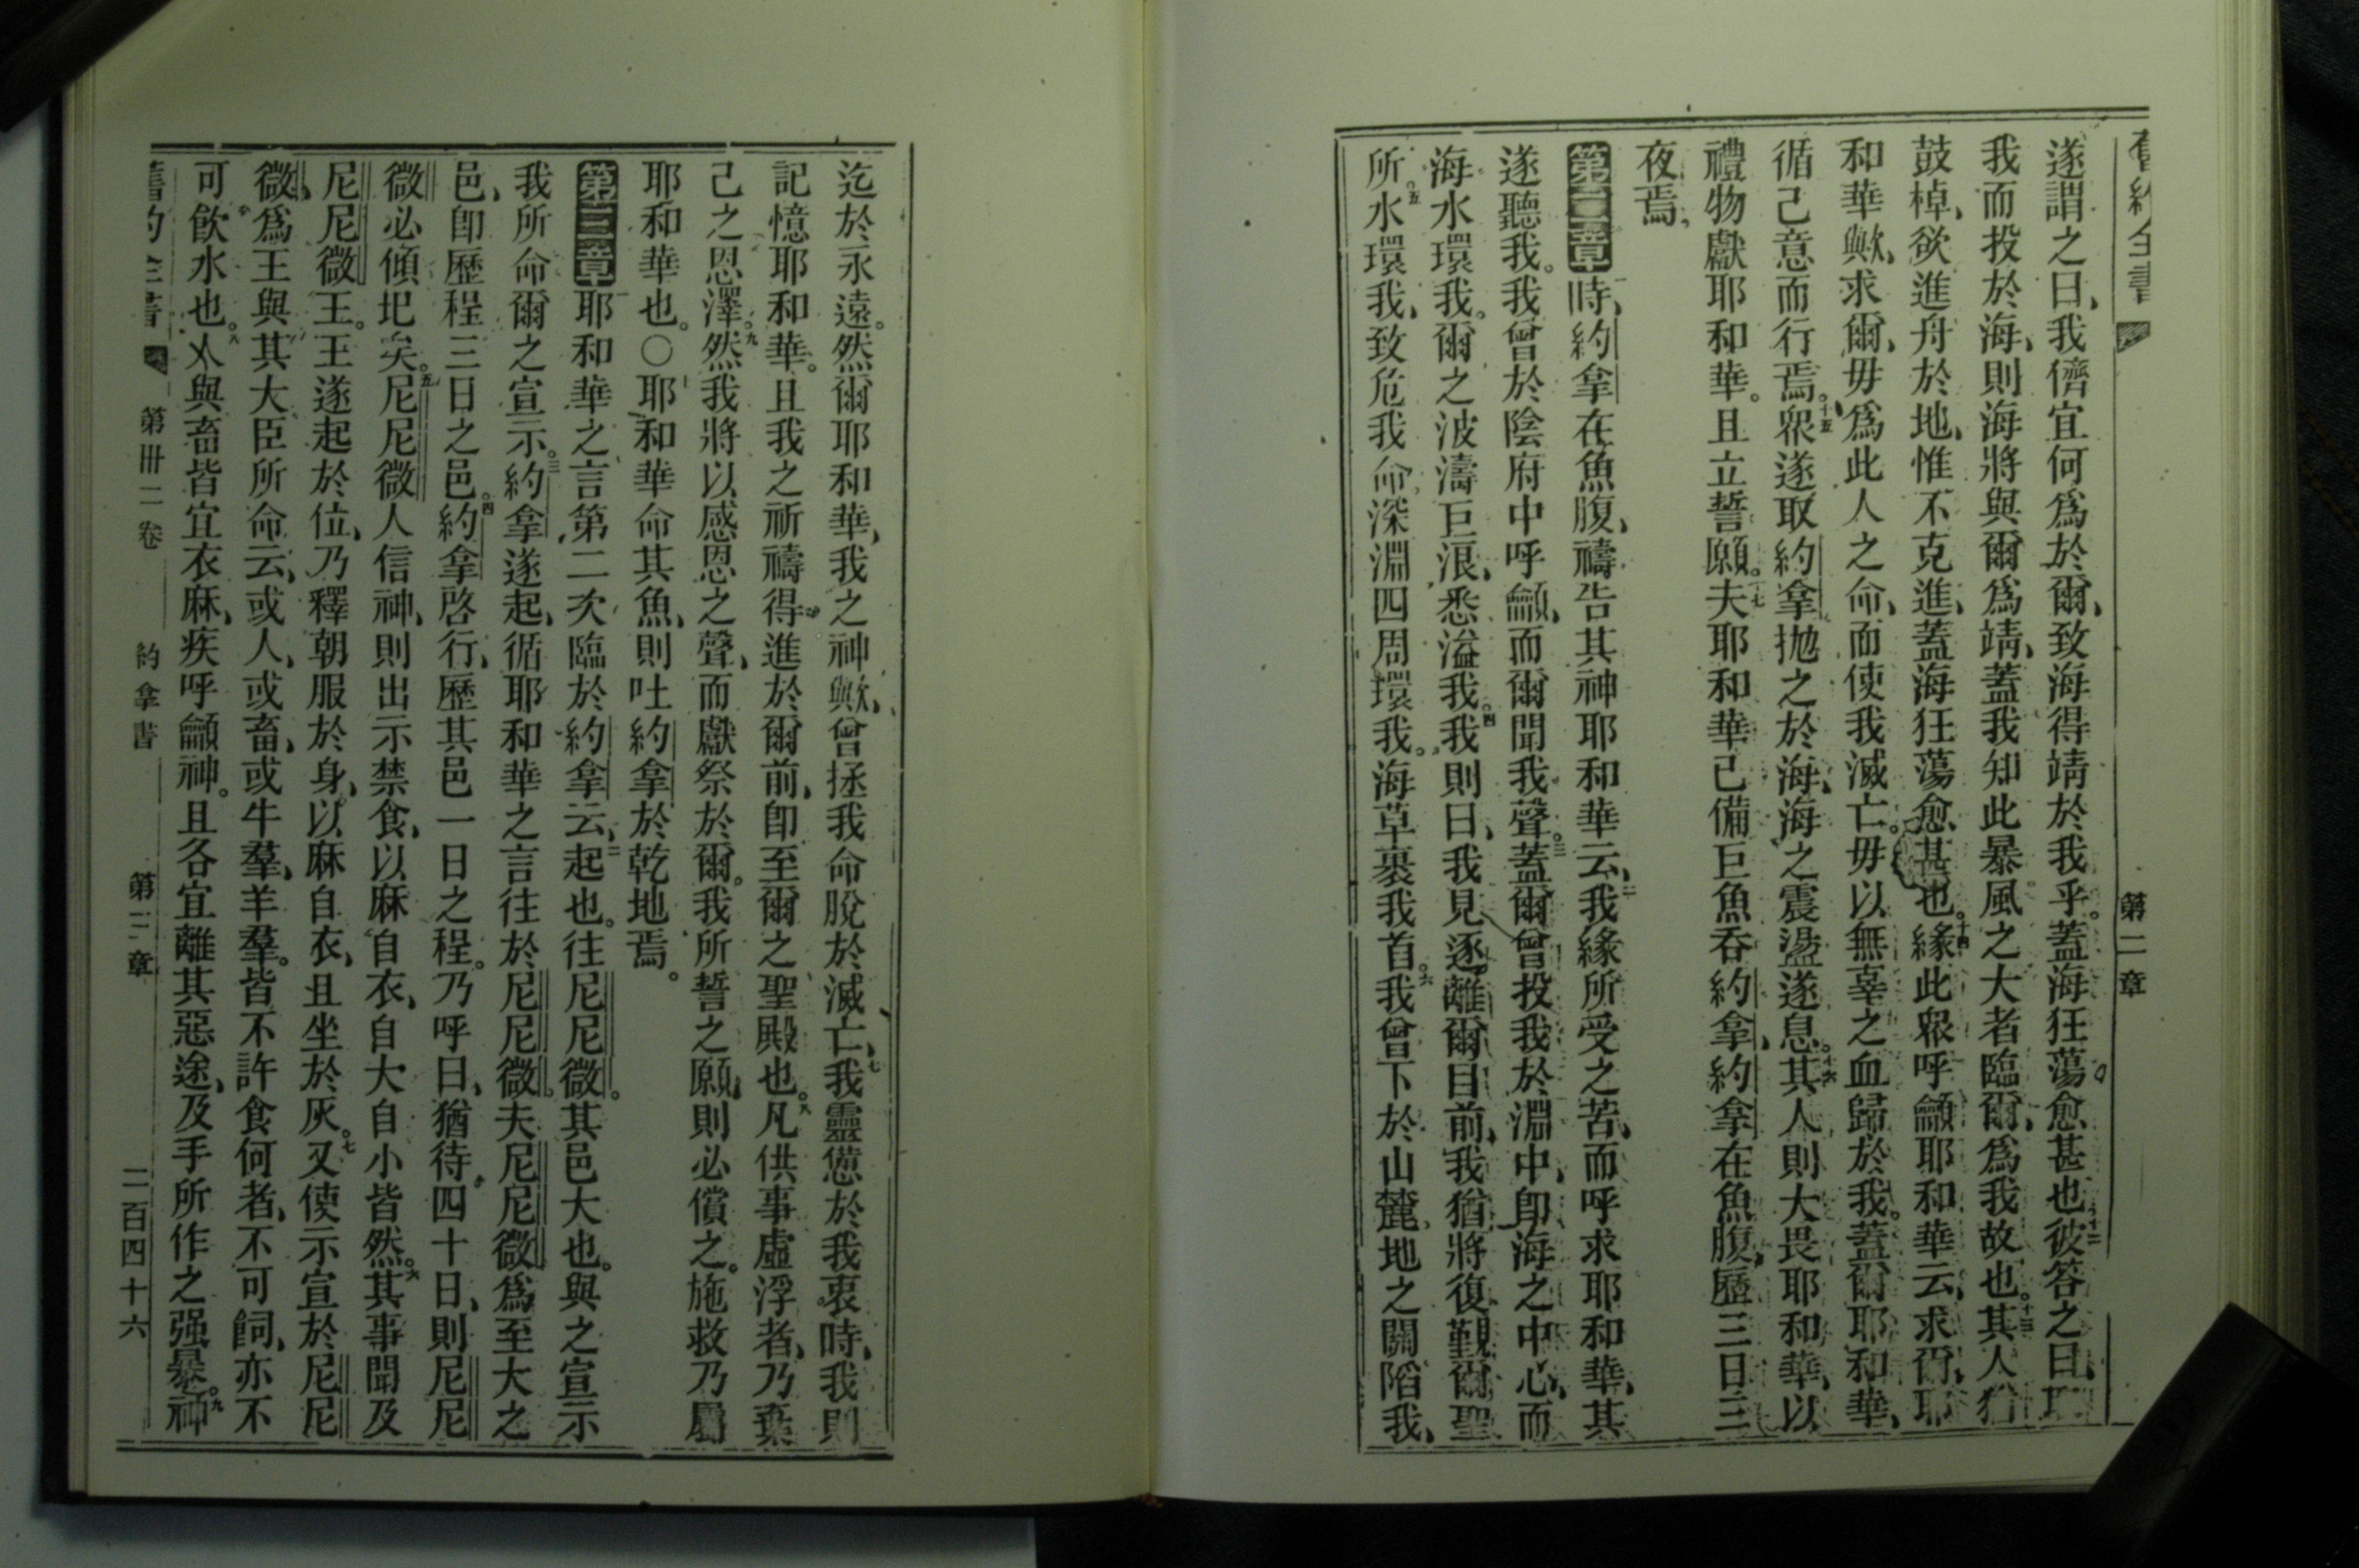 舊約全書 第二章
遂謂之曰、我儕宜何爲於爾、致海得靖於我乎。蓋海狂蕩。愈甚也十二彼答之曰、取
我而投於海、則海將與爾爲靖、蓋我知此暴風之大者臨爾、爲我故也。十三其人猶
鼓棹、欲進舟於地、惟不克進、蓋海狂蕩愈甚也。十四緣此眾呼籲耶和華云、求爾、耶
和華歟、求爾、毋爲此人之命、而使我滅亡。毋以無辜之血歸於我。蓋爾耶和華、
循己意而行焉。十五眾遂取約拿拋之於海、海之震盪遂息。十六其人則大畏耶和華、以
禮物獻耶和華。且立誓願。十七夫耶和華己備巨魚吞約拿、約拿在魚腹、歷三日三
夜焉。
第二章時、約拿在魚腹、禱告其神耶和華云、二我緣所受之苦、而呼求耶和華、其
遂聽我。我曾於陰府中呼籲、而爾聞我聲。三蓋爾曾投我於淵中、卽海之中心、而
海水環我。爾之波濤巨浪、悉溢我。四我則曰、我見逐離爾目前、我猶將復觀爾聖
所。五水環我、致危我命、深淵四周環我。海草裹我首。六我曾下於山麓、地之關陷我、
迄於永遠。然爾耶和華、我之神歟、曾拯我命脫於滅亡、七我靈憊於我衷時、我則
記憶耶和華。且我之祈禱得進於爾前、卽至爾之聖殿也。八凡供事虛浮者、乃棄
己之恩澤。九然我將以感恩之聲、而獻祭於爾。我所誓之願、則必償之。施救乃屬
耶和華也。〇十耶和華命其魚、則吐約拿於乾地焉。
第三章耶和華之言第二次臨於約拿云、二起也。往尼尼微。其邑大也。與之宣示
我所命爾之宣示。三約拿遂起、循耶和華之言往於尼尼微。夫尼尼微爲至大之
邑、卽歷程三日之邑。四約拿啓行、歷其邑一日之程。乃呼曰、猶待四十日、則尼尼
微必傾圯矣。五尼尼微人信神、則出示禁食、以麻自衣、自大自小皆然。六其事聞及
尼尼微王。王遂起於位、乃釋朝服於身、以麻自衣、且坐於灰。七又使示宣於尼尼
微、爲王與其大臣所命云、或人、或畜、或牛羣、羊羣。皆不許食何者、不可飼、亦不
可飲水也。八人與畜皆宜衣麻、疾呼籲神。且各宜離其惡途、及手所作之强暴。九神
舊約全書 第卅二卷 約拿書 第三章 二百四十六